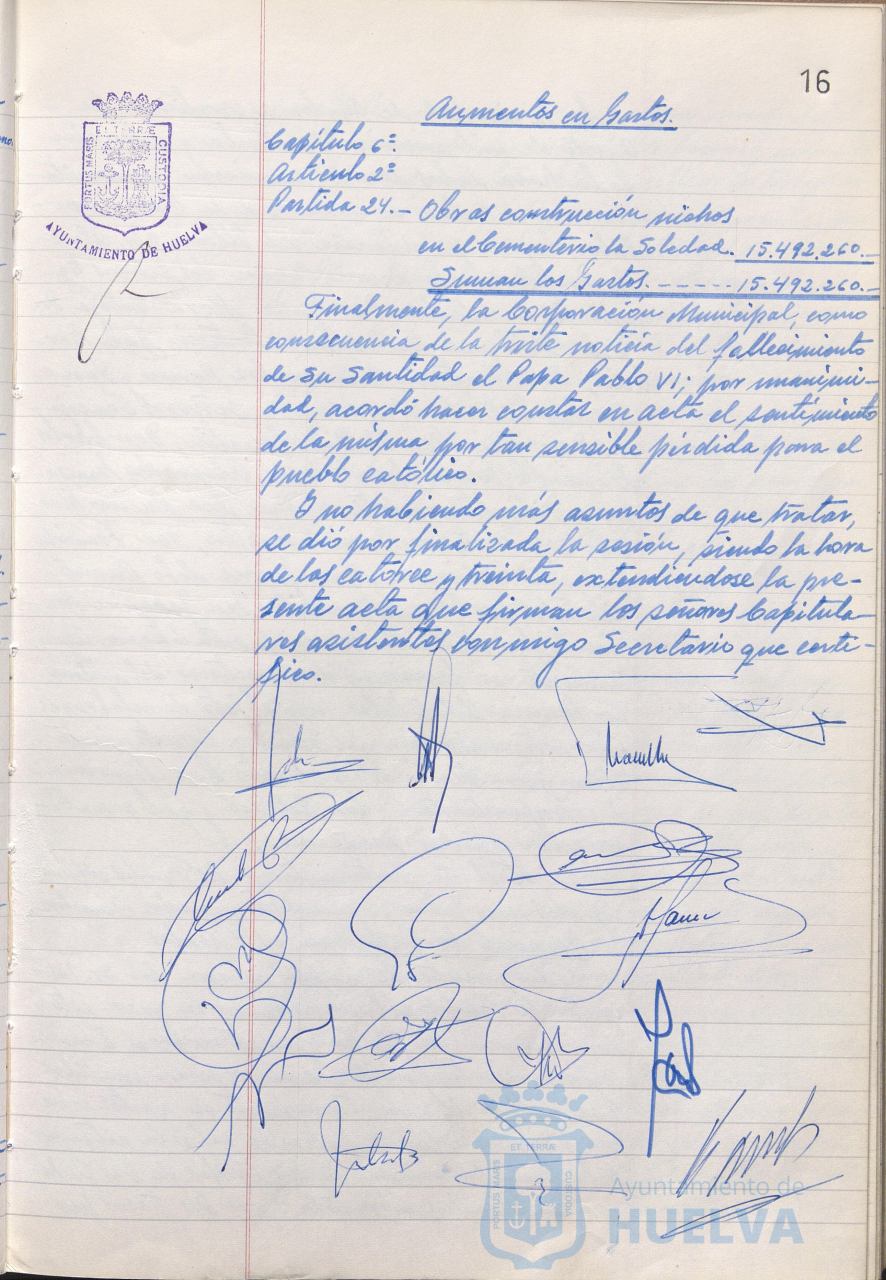 16
Aumentos en Gastos.
Capítulo 6º.
Artículo 2º
Partida 24.- Obras construcción nichos
en el Cementerio la Soledad. 15.492.260.-
Suman los Gastos. ----- 15.492.260.-
Finalmente, la Corporación Municipal, como
consecuencia de la triste noticia del fallecimiento
de Su Santidad el Papa Pablo VI; por unanimi-
dad, acordó hacer constar en acta el sentimiento
de la misma por tan sensible pérdida para el
pueblo católico.
Y no habiendo más asuntos de que tratar,
se dió por finalizada la sesión, siendo la hora
de las catorce y treinta, extendiéndose la pre-
sente acta que firman los señores Capitula-
res asistentes conmigo Secretario que certi-
fico.
PORTUS MARIS ET TERRÆ CUSTODIA
AYUNTAMIENTO DE HUELVA
PORTUS MARIS ET TERRÆ CUSTODIA
Ayuntamiento de
HUELVA